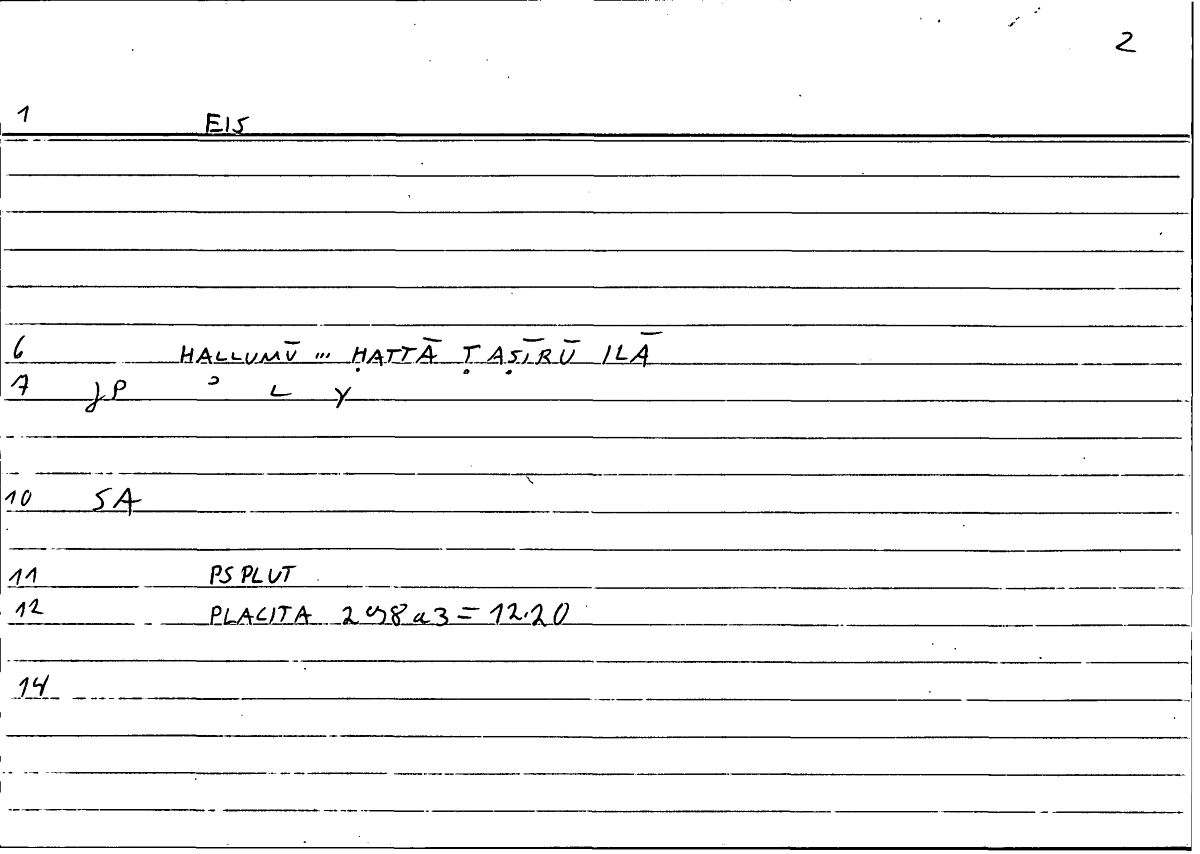 2
1 EIS
6 HALLUMŪ ... ḤATTĀ ṬAṢĪRŪ ILĀ
7 ʾ L Y
10 SA
11 PS PLUT
12 PLACITA 298a3 = 12.20
14